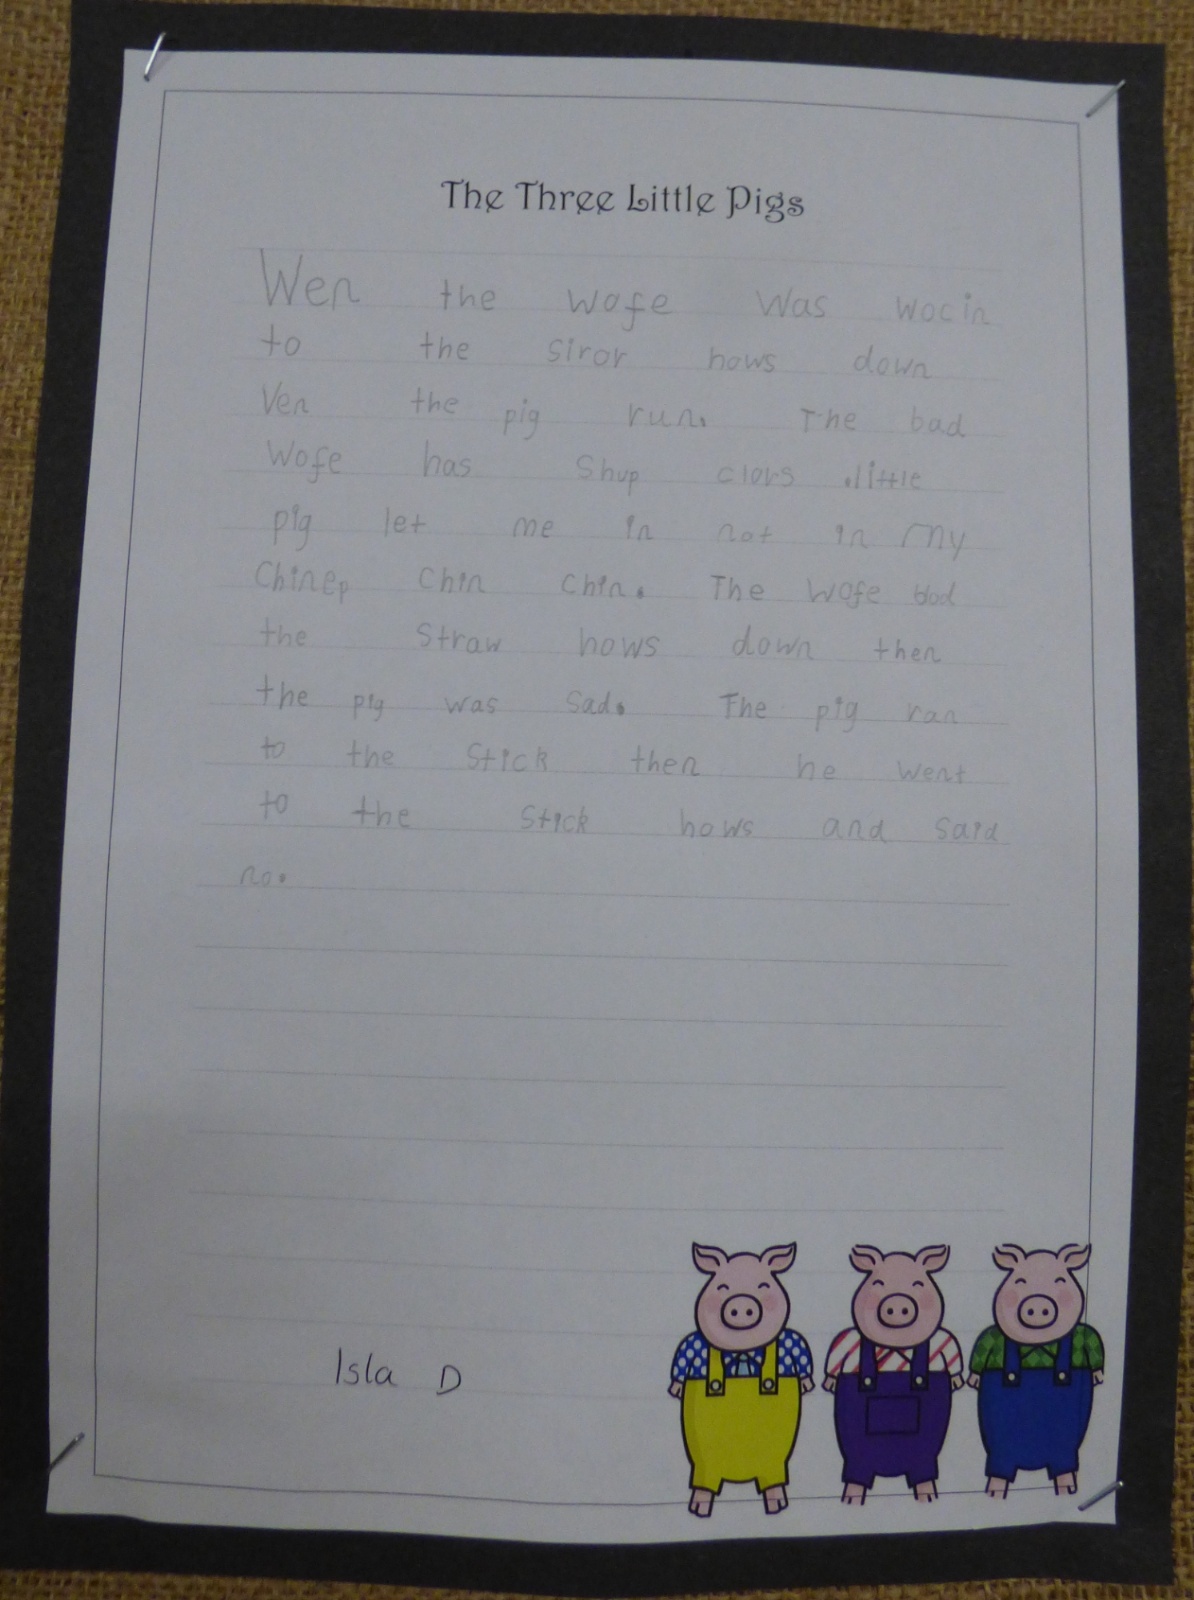 The Three Little Pigs
Wen the wofe was wocin
to the siror hows down
Ven the pig run. The bad
Wofe has Shup clors .little
pig let me in not in my
Chinep Chin Chin. The wofe blod
the Straw hows down then
the pig was sad. The pig ran
to the Stick then he went
to the Stick hows and said
no.
Isla D